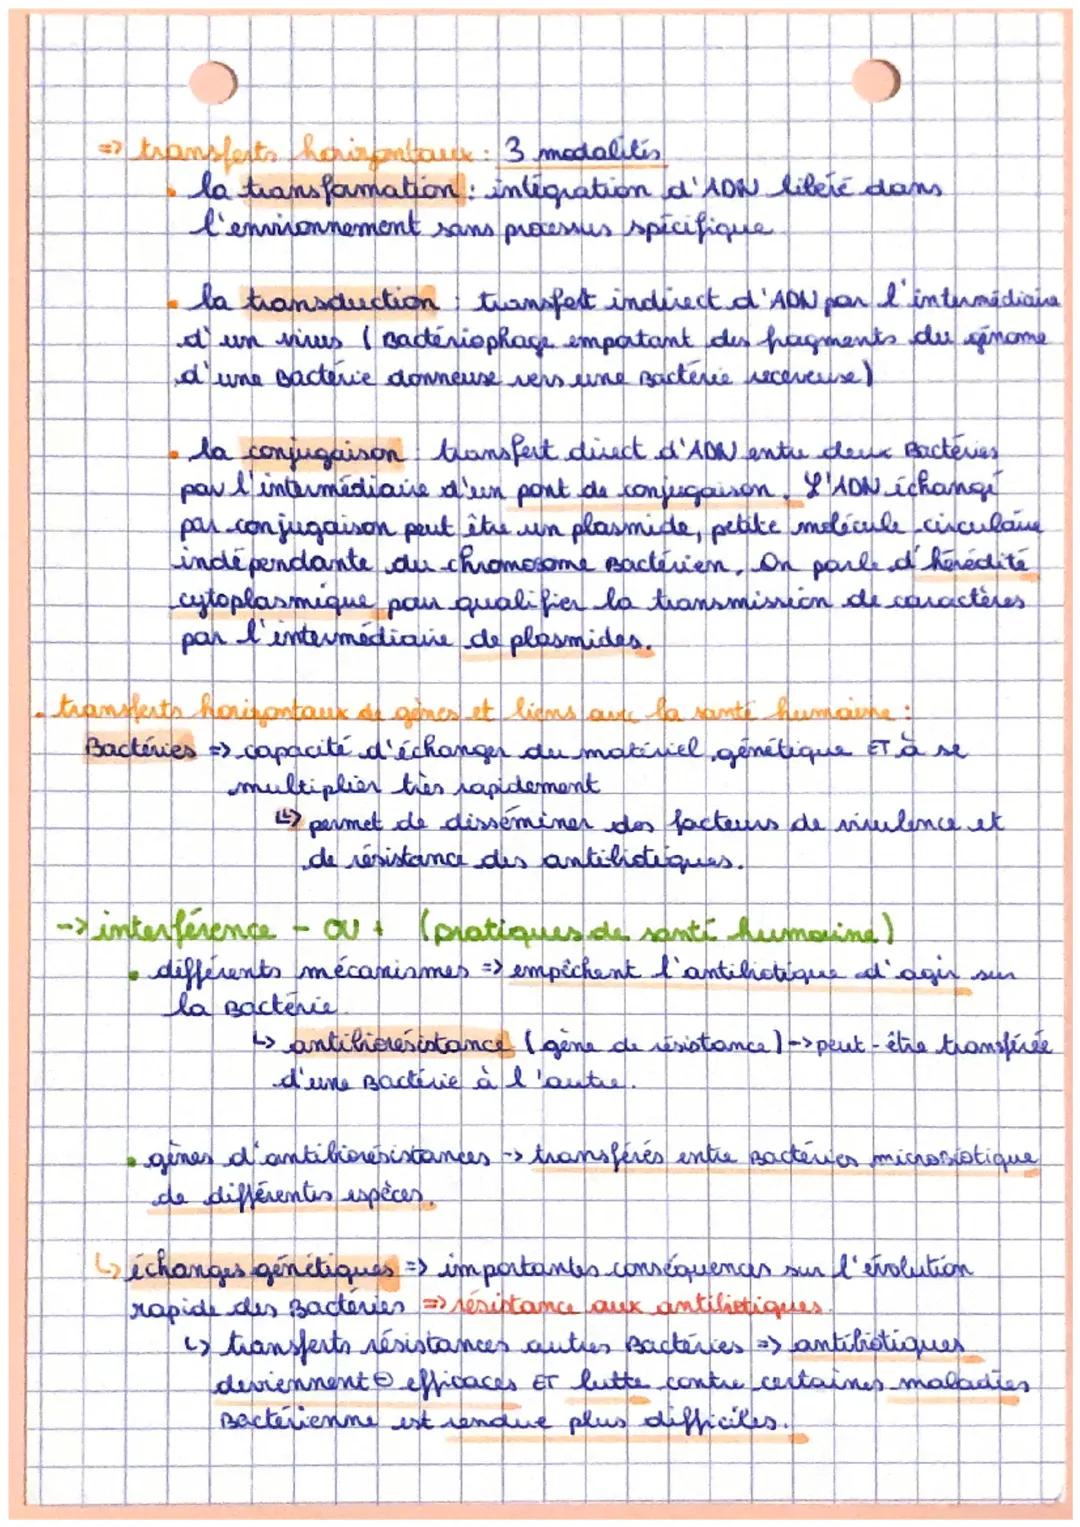 => transferts horizontaux : 3 modalités
• la transformation : intégration d'ADN libéré dans
l'environnement sans processus spécifique.
• la transduction : transfert indirect d'ADN par l'intermédiaire
d'un virus (Bactériophage emportant des fragments du génome
d'une Bactérie donneuse vers une Bactérie receveuse)
• la conjugaison : transfert direct d'ADN entre deux Bactéries
par l'intermédiaire d'un pont de conjugaison. L'ADN échangé
par conjugaison peut être un plasmide, petite molécule circulaire
indépendante du chromosome Bactérien. On parle d'hérédité
cytoplasmique pour qualifier la transmission de caractères
par l'intermédiaire de plasmides.
• transferts horizontaux de gènes et liens avec la santé humaine :
Bactéries => capacité d'échanger du matériel génétique ET à se
multiplier très rapidement
↳ permet de disséminer des facteurs de virulence et
de résistance des antibiotiques.
-> interférence - OU + (pratiques de santé humaine)
• différents mécanismes => empêchent l'antibiotique d'agir sur
la Bactérie.
↳ antibiorésistance (gène de résistance) -> peut-être transférée
d'une Bactérie à l'autre.
• gènes d'antibiorésistances -> transférés entre Bactéries microbiotique
de différentes espèces.
↳ échanges génétiques => importantes conséquences sur l'évolution
rapide des Bactéries => résistance aux antibiotiques.
↳ transferts résistances autres Bactéries => antibiotiques
deviennent ⊖ efficaces ET lutte contre certaines maladies
Bactérienne est rendue plus difficiles.